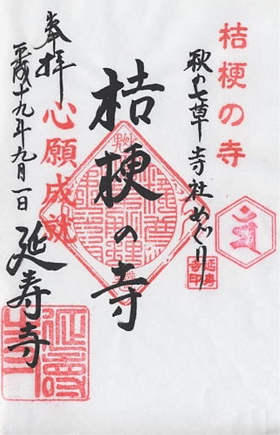 桔梗の寺
秋の七草寺社めぐり
桔梗の寺
奉拝
心願成就
平成十九年九月一日
延寿寺